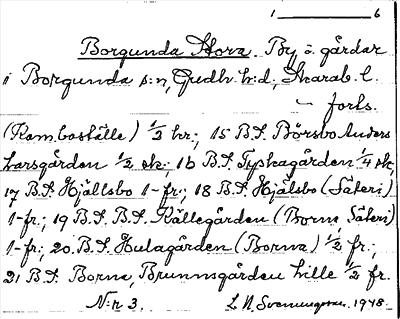 1 6
Borgunda Stora. By o. gårdar
i Borgunda s:n, Gudh. h:d; Skarab. l.
— forts.
(Kom.boställe) 1/2 kr.; 15 B.S. Börsbo Anders
Larsgården 1/2 sk.; 16 B.S. Tyskagården 1/4 sk;
17 B.S. Hjällsbo 1-fr.; 18 B.S. Hjälsbo (Säteri)
1-fr.; 19 B.S. B.S. Källegården (Borne, Säteri)
1-fr.; 20 B.S. Hulagården (Borna) 1/2 fr.;
21 B.S. Borne, Brunnsgården lille 1/2 fr.
N:r 3. 1948.